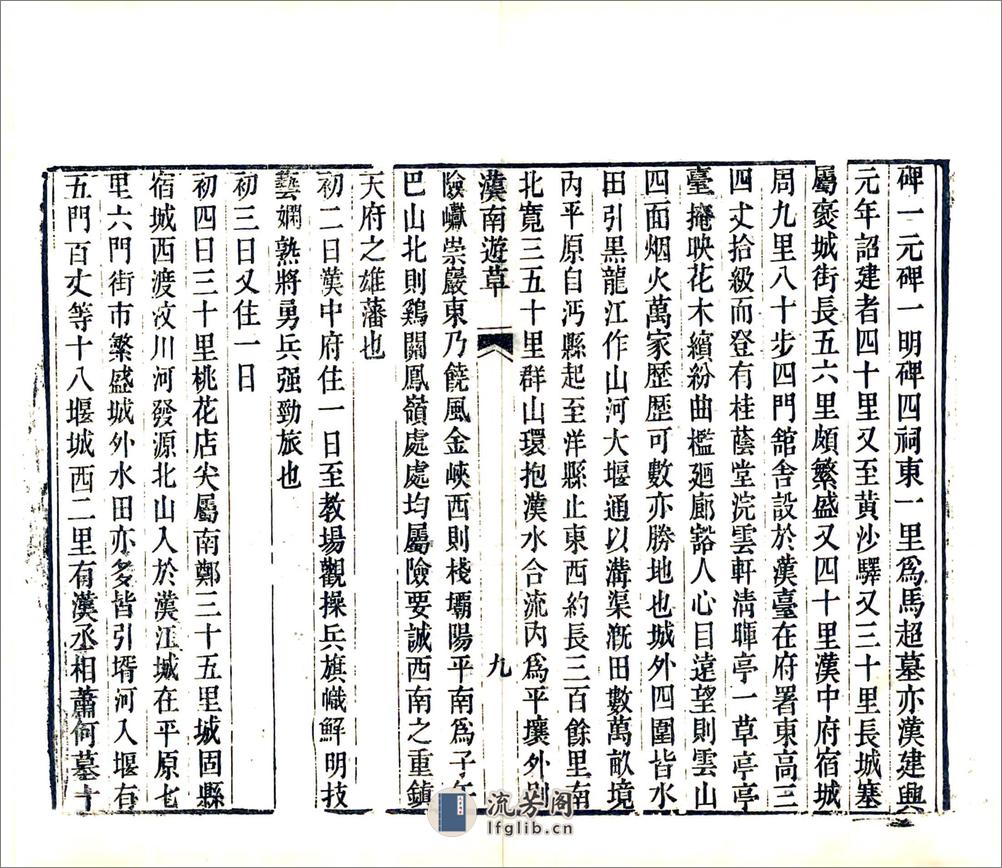 碑一元碑一明碑四祠東一里爲馬超墓亦漢建興
元年詔建者四十里又至黄沙驛又三十里長城寨
屬褒城街長五六里頗繁盛又四十里漢中府宿城
周九里八十步四門舘舍設於漢臺在府署東高三
四丈拾級而登有桂蔭堂浣雲軒清暉亭一草亭亭
臺掩映花木繽紛曲檻廻廊豁人心目遠望則雲山
四面烟火萬家歷歷可數亦勝地也城外四圍皆水
田引黑龍江作山河大堰通以溝渠漑田數萬畝境
内平原自沔縣起至洋縣止東西約長三百餘里南
北寬三五十里群山環抱漢水合流内爲平壤外則
漢南遊草
九
險巇崇巖東乃饒風金峽西則棧壩陽平南爲子午
巴山北則鷄關鳳嶺處處均屬險要誠西南之重鎮
天府之雄藩也
初二日漢中府住一日至教場觀操兵旗幟鮮明技
藝嫻熟將勇兵强勁旅也
初三日又住一日
初四日三十里桃花店尖屬南鄭三十五里城固縣
宿城西渡汶川河發源北山入於漢江城在平原七
里六門街市繁盛城外水田亦多皆引壻河入堰有
五門百丈等十八堰城西二里有漢丞相蕭何墓十
流芳阁
lfglib.cn